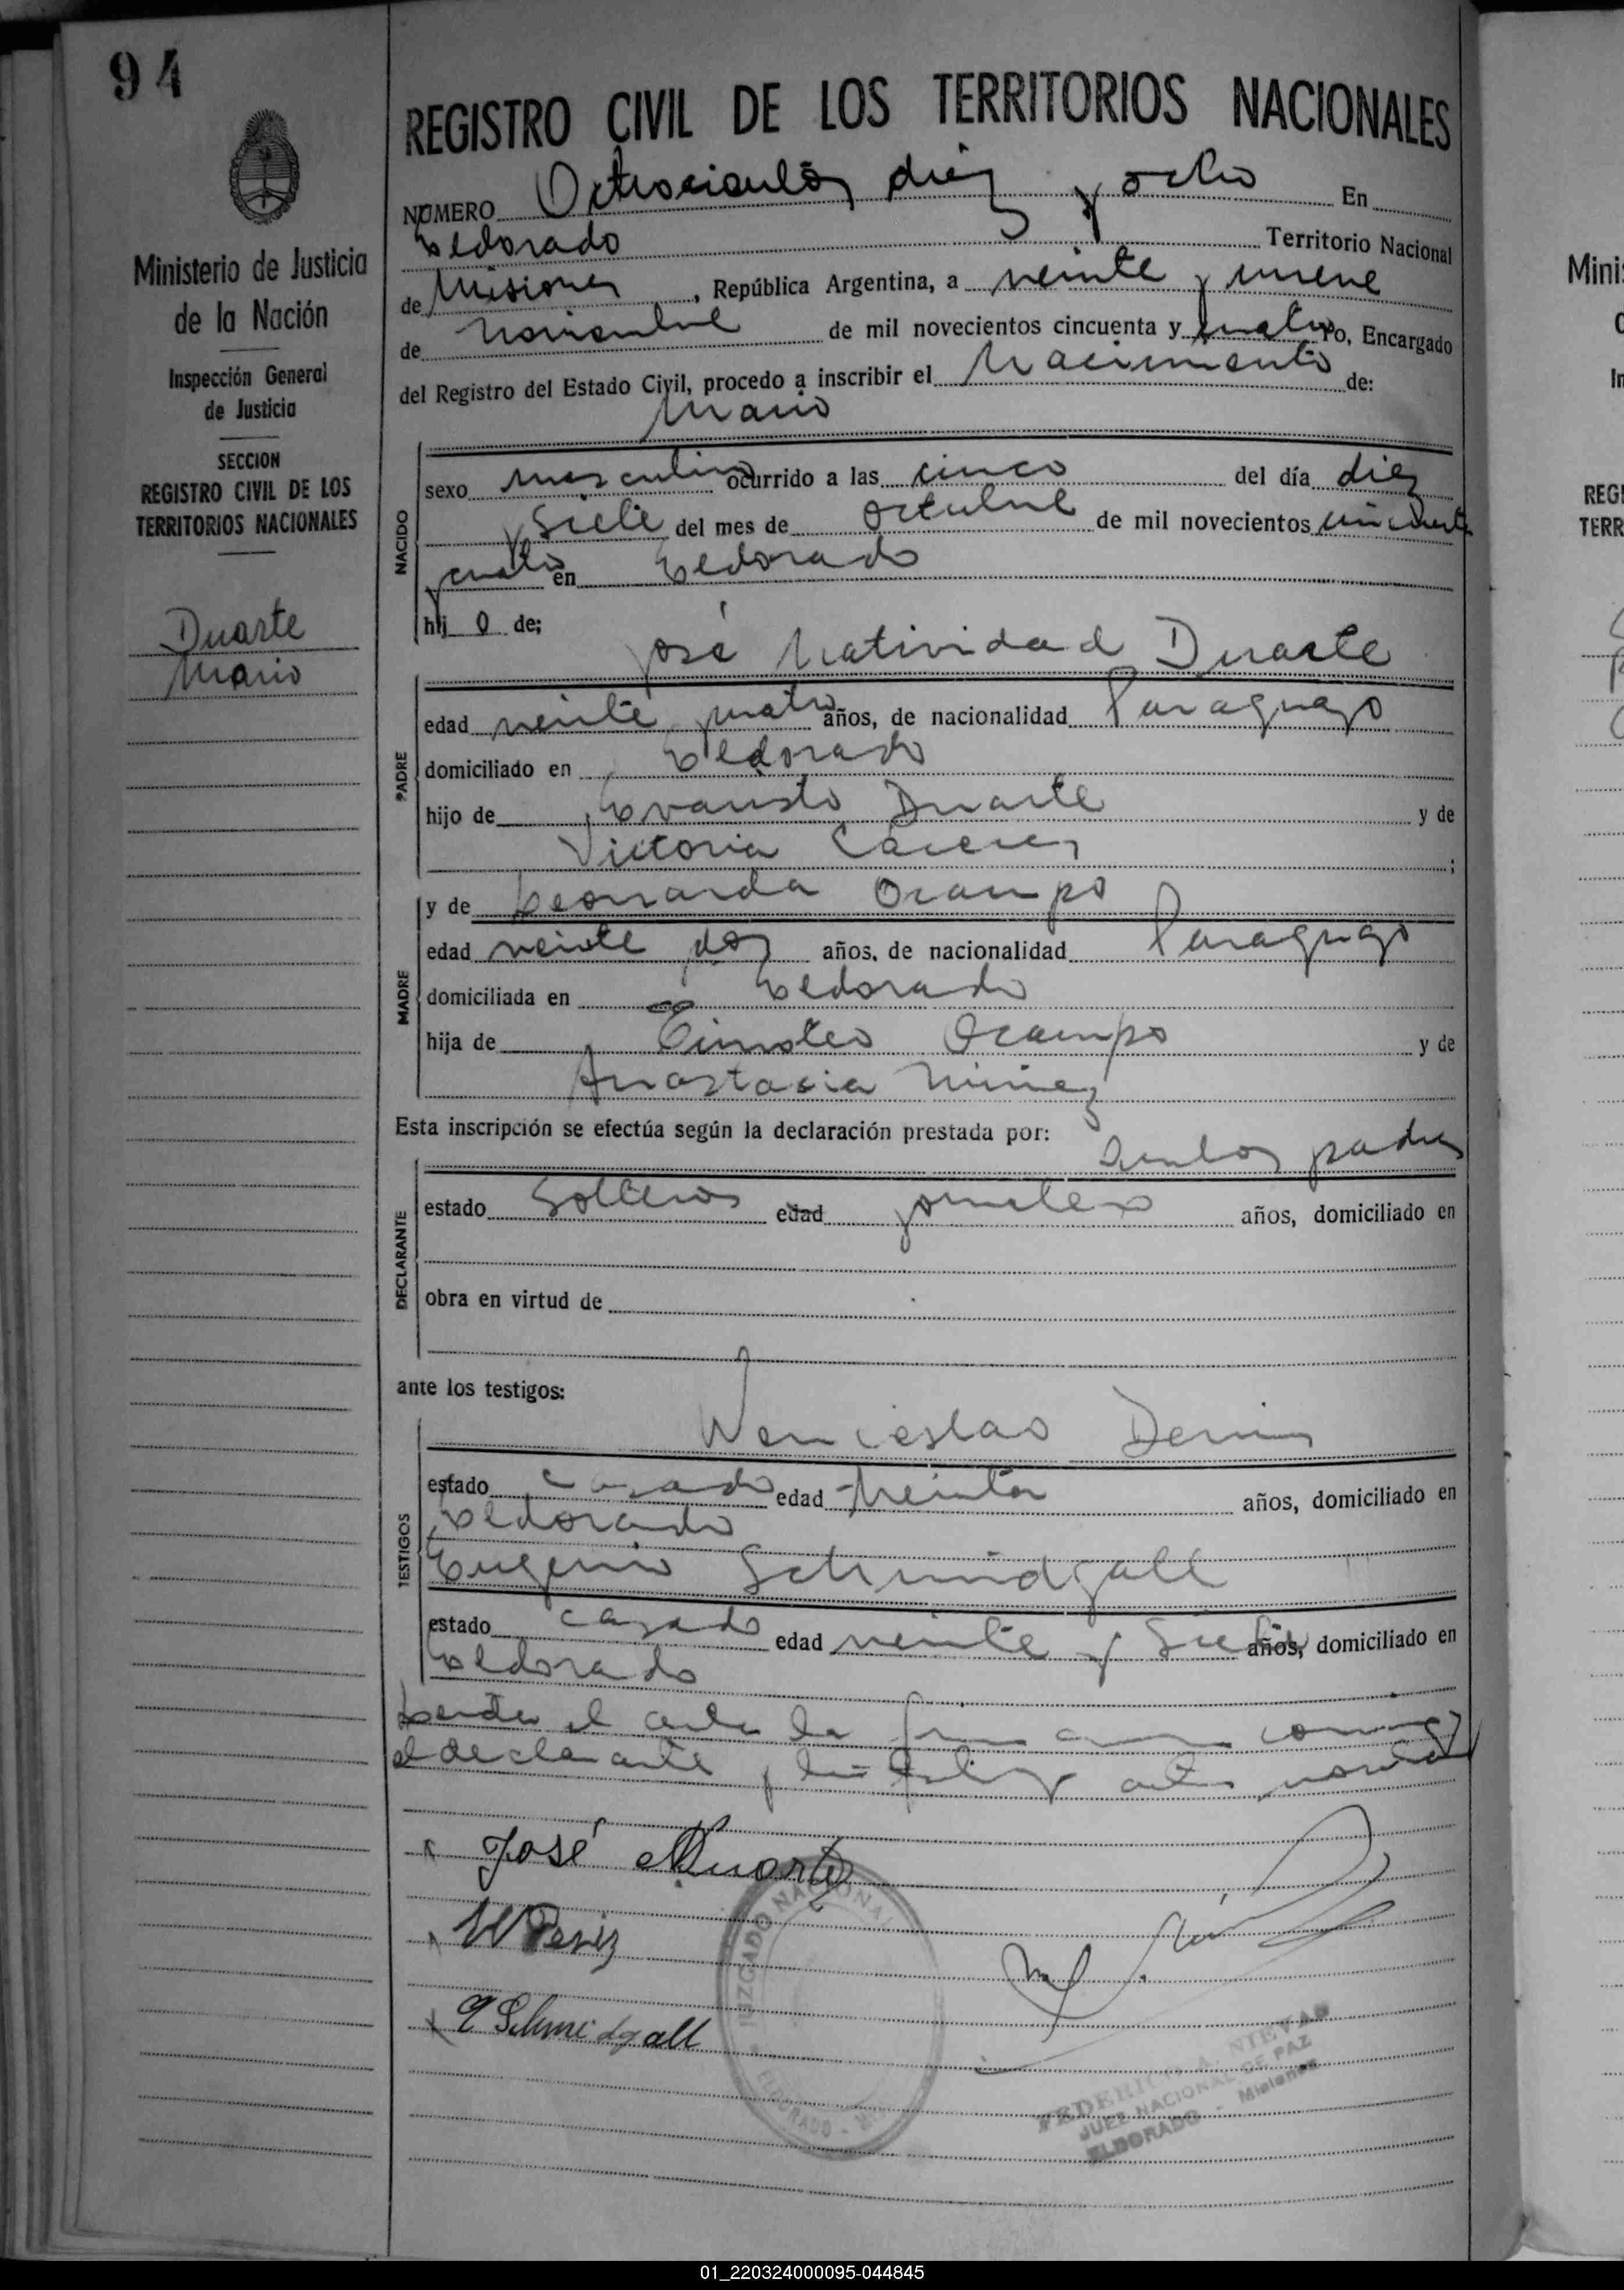 94
REGISTRO CIVIL DE LOS TERRITORIOS NACIONALES
NÚMERO Ochocientos diez y ocho En
Eldorado Territorio Nacional
de Misiones, República Argentina, a veinte y nueve
de noviembre de mil novecientos cincuenta y cuatro Yo, Encargado
del Registro del Estado Civil, procedo a inscribir el Nacimiento de:
Mario
Ministerio de Justicia
de la Nación
Inspección General
de Justicia
SECCION
REGISTRO CIVIL DE LOS
TERRITORIOS NACIONALES
Duarte
Mario
NACIDO
sexo masculino ocurrido a las cinco del día diez
y siete del mes de octubre de mil novecientos cincuenta
y cuatro en Eldorado
hij o de;
José Natividad Duarte
PADRE
edad veinte y cuatro años, de nacionalidad Paraguayo
domiciliado en Eldorado
hijo de Evaristo Duarte y de
Victoria Caceres ;
y de Leonarda Ocampo
MADRE
edad veinte y dos años, de nacionalidad Paraguayo
domiciliada en Eldorado
hija de Timoteo Ocampo y de
Anastacia Nuñez
Esta inscripción se efectúa según la declaración prestada por:
Ambos padres
DECLARANTE
estado Solteros edad años, domiciliado en
obra en virtud de
ante los testigos:
Wenceslao
TESTIGOS
estado casado edad treinta años, domiciliado en
Eldorado
Eugenio Schmidgall
estado casado edad veinte y siete años, domiciliado en
Eldorado
el acta la conmigo
el declarante y los testigos
José N Duarte
W
E Schmidgall
JUZGADO NACIONAL
ELDORADO
A. NIEVAS
JUEZ NACIONAL DE PAZ
ELDORADO - Misiones
01_220324000095-044845